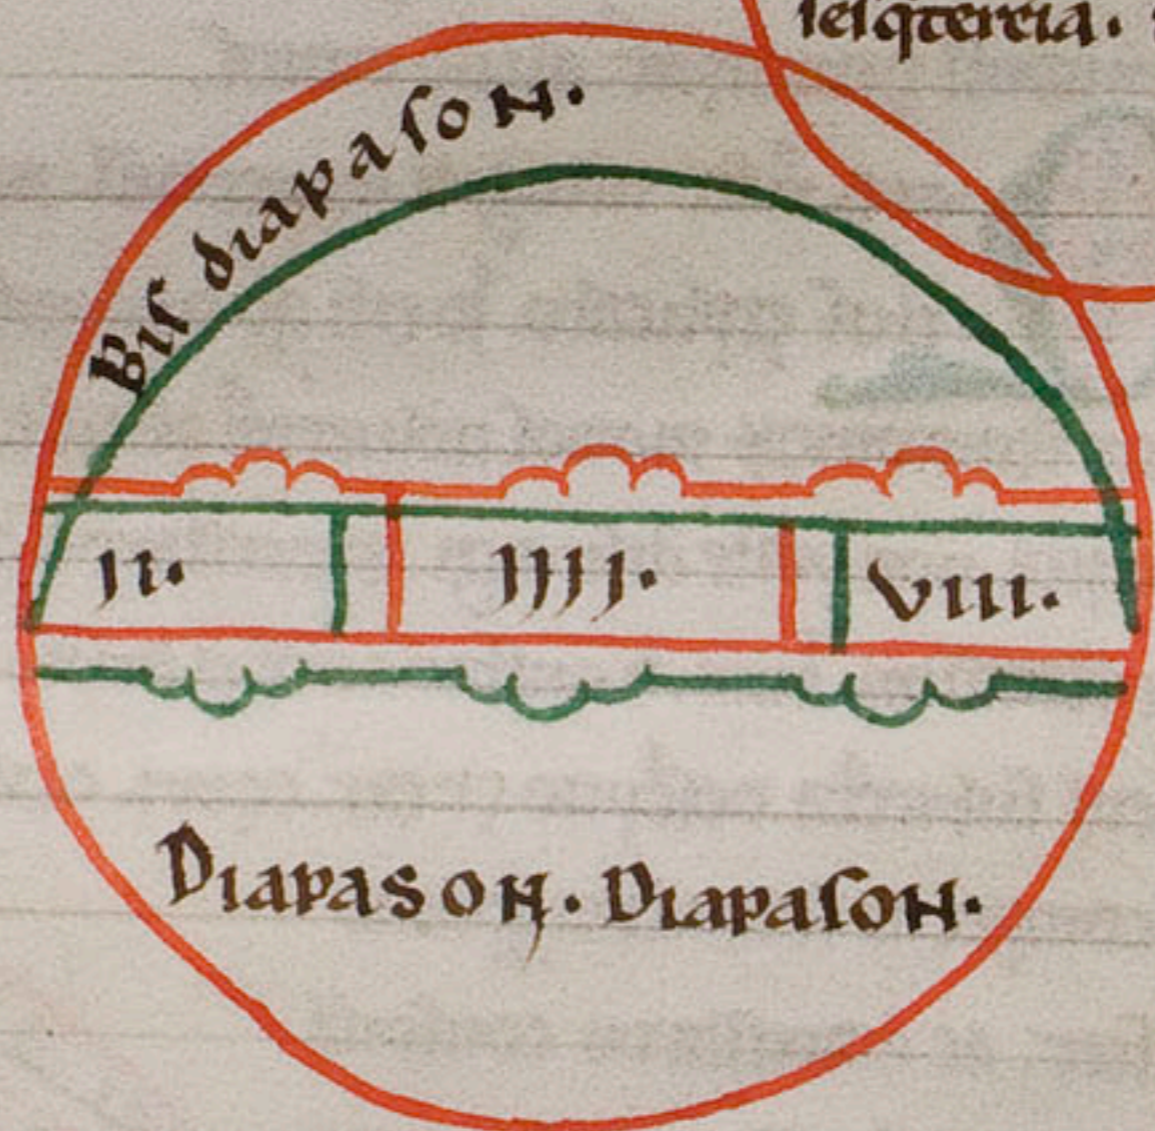 seſqtercia.
Biſ diapaſon.
II.
IIII.
VIII.
Diapason. Diapaſon.